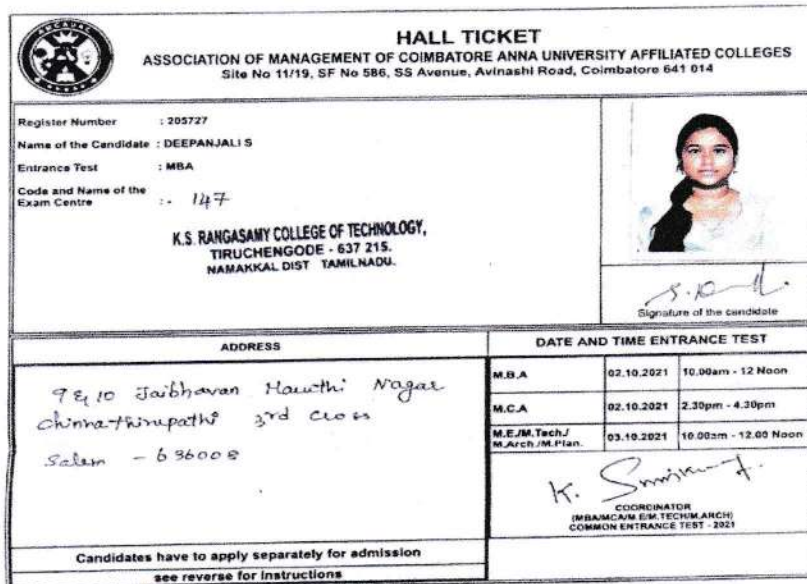 HALL TICKET
ASSOCIATION OF MANAGEMENT OF COIMBATORE ANNA UNIVERSITY AFFILIATED COLLEGES
Site No 11/19, SF No 586, SS Avenue, Avinashi Road, Coimbatore 641 014
Register Number : 205727
Name of the Candidate : DEEPANJALI S
Entrance Test : MBA
Code and Name of the
Exam Centre : - 147
K.S. RANGASAMY COLLEGE OF TECHNOLOGY,
TIRUCHENGODE - 637 215.
NAMAKKAL DIST TAMILNADU.
Signature of the candidate
ADDRESS
9 & 10 Jaibhavan Maruthi Nagar
Chinnathirupathi 3rd cross
Salem - 636008
Candidates have to apply separately for admission
see reverse for instructions
DATE AND TIME ENTRANCE TEST
M.B.A 02.10.2021 10.00am - 12 Noon
M.C.A 02.10.2021 2.30pm - 4.30pm
M.E./M.Tech./
M.Arch./M.Plan. 03.10.2021 10.00am - 12.00 Noon
COORDINATOR
(MBA/MCA/M.E/M.TECH/M.ARCH)
COMMON ENTRANCE TEST - 2021